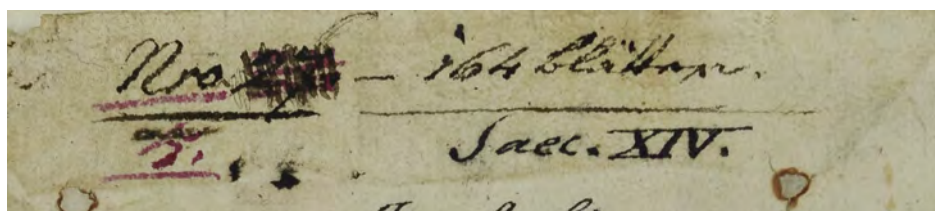 Nro. – 164 blätter.
Saec. XIV.